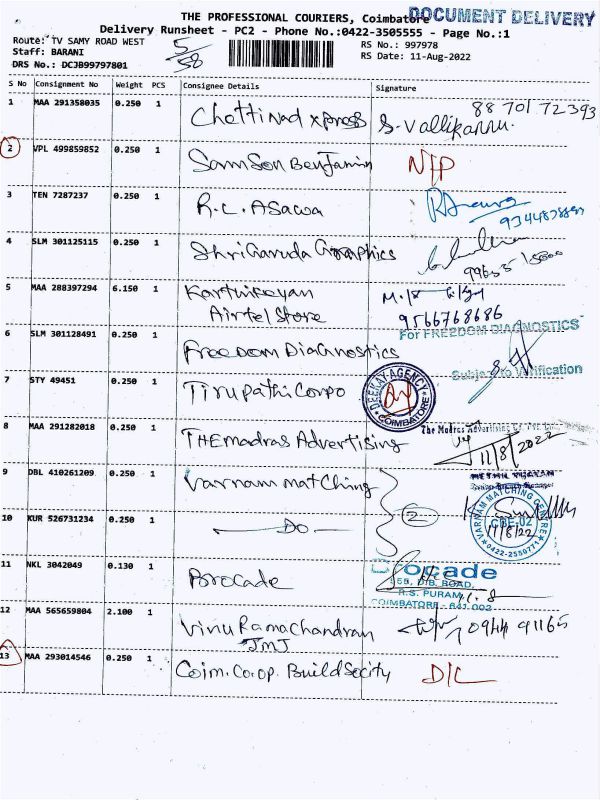 THE PROFESSIONAL COURIERS, Coimbatore
DOCUMENT DELIVERY
Delivery Runsheet - PC2 - Phone No.:0422-3505555 - Page No.:1
Route: TV SAMY ROAD WEST
Staff: BARANI
DRS No.: DCJB99797801
5/58
RS No.: 997978
RS Date: 11-Aug-2022
S No Consignment No Weight PCS Consignee Details Signature
1 MAA 291358035 0.250 1 Chettinad xpress S. Vallikannu. 88 701 72 393
2 VPL 499859852 0.250 1 Samson Benjamin N/P
3 TEN 7287237 0.250 1 R.L. Asawa
4 SLM 301125115 0.250 1 Shri Garuda Graphics
5 MAA 288397294 6.150 1 Karthikeyan
Airtel Store 9566768686
6 SLM 301128491 0.250 1 Freedom Diagnostics
For FREEDOM DIAGNOSTICS
Subject to Verification
7 STY 49451 0.250 1 Tirupathi Corpo
DEEKAY AGENCY
COIMBATORE
8 MAA 291282018 0.250 1 THE madras Advertising
The Madras Advertising
11/8/2022
9 DBL 410261209 0.250 1 Varnam matching
10 KUR 526731234 0.250 1 — Do — 2
VARNAM MATCHING CENTRE
CBE-02
11/8/22
0422-2550771
11 NKL 3042049 0.130 1 Brocade
Brocade
D.B. ROAD,
R.S. PURAM,
COIMBATORE - 641 002
12 MAA 565659804 2.100 1 Vinu Ramachandran
JMJ 0944 91165
13 MAA 293014546 0.250 1 Coim. Co. op. Build Socity D/L